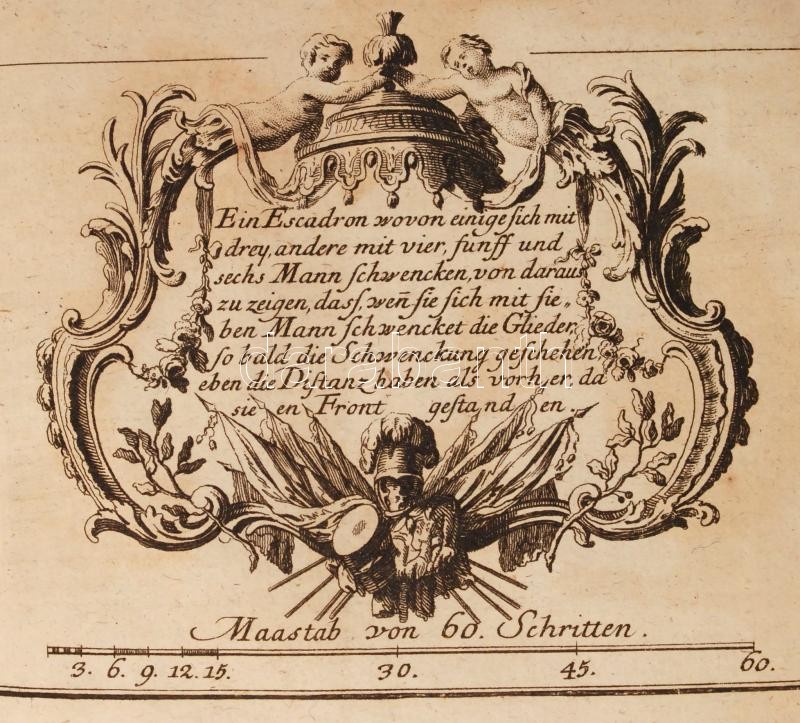 Ein Escadron wovon einige sich mit
drey, andere mit vier, funff und
sechs Mann schwencken, von daraus
zu zeigen, dass, weñ sie sich mit sie„
ben Mann schwencket die Glieder,
so bald die Schwenckung geschehen
eben die Distanz haben als vorher, da
sie en Front gestanden.
darabanth
Maastab von 60. Schritten.
3. 6. 9. 12. 15. 30. 45. 60.